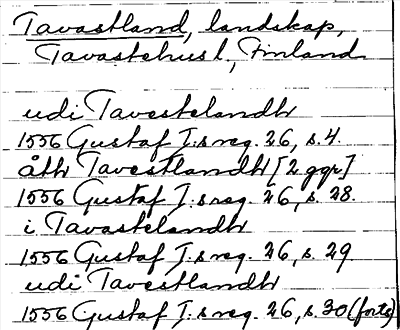 Tavastland, landskap,
Tavastehus l., Finland
udi Tavestelandh
1556 Gustaf I:s reg. 26, s. 4.
åth Tavestlandh [2 ggr]
1556 Gustaf I:s reg. 26, s. 28.
i Tavastelandh
1556 Gustaf I:s reg. 26, s. 29.
udi Tavestlandh
1556 Gustaf I:s reg. 26, s. 30 (forts)